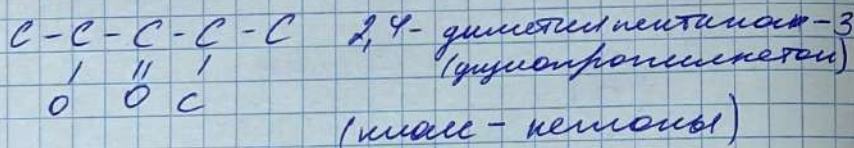 C - C - C - C - C 2,4 - диметилпентанон - 3
(диизопропилкетон)
O O C
(класс - кетоны)